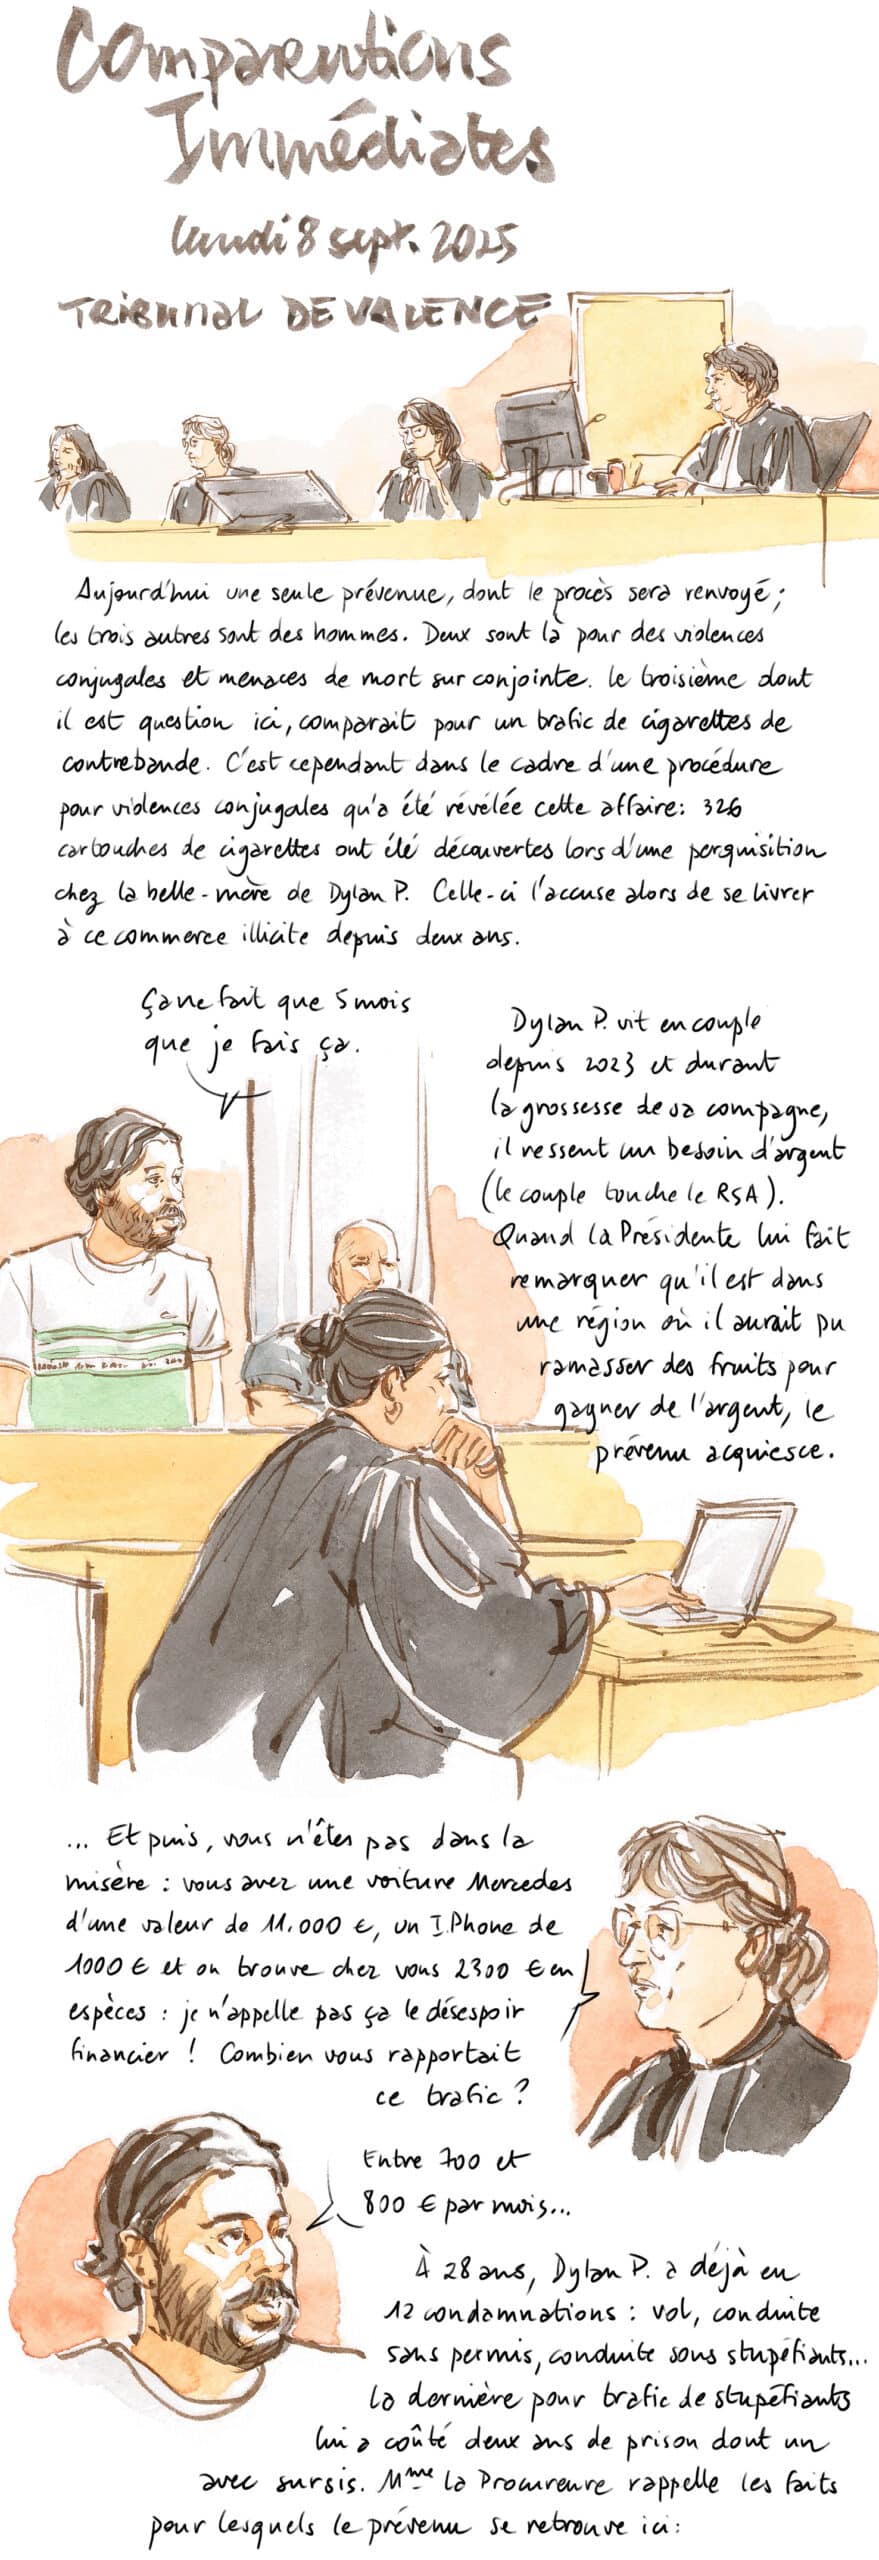 Comparutions
Immédiates
lundi 8 sept. 2025
TRIBUNAL DE VALENCE
Aujourd'hui une seule prévenue, dont le procès sera renvoyé ;
les trois autres sont des hommes. Deux sont là pour des violences
conjugales et menaces de mort sur conjointe. Le troisième dont
il est question ici, comparait pour un trafic de cigarettes de
contrebande. C'est cependant dans le cadre d'une procédure
pour violences conjugales qu'a été révélée cette affaire : 326
cartouches de cigarettes ont été découvertes lors d'une perquisition
chez la belle-mère de Dylan P. Celle-ci l'accuse alors de se livrer
à ce commerce illicite depuis deux ans.
Ça ne fait que 5 mois
que je fais ça.
Dylan P. vit en couple
depuis 2023 et durant
la grossesse de sa compagne,
il ressent un besoin d'argent
(le couple touche le RSA).
Quand la Présidente lui fait
remarquer qu'il est dans
une région où il aurait pu
ramasser des fruits pour
gagner de l'argent, le
prévenu acquiesce.
... Et puis, vous n'êtes pas dans la
misère : vous avez une voiture Mercedes
d'une valeur de 11.000 €, un I.Phone de
1000 € et on trouve chez vous 2300 € en
espèces : je n'appelle pas ça le désespoir
financier ! Combien vous rapportait
ce trafic ?
Entre 700 et
800 € par mois...
À 28 ans, Dylan P. a déjà eu
12 condamnations : vol, conduite
sans permis, conduite sous stupéfiants...
la dernière pour trafic de stupéfiants
lui a coûté deux ans de prison dont un
avec sursis. Mme la Procureure rappelle les faits
pour lesquels le prévenu se retrouve ici :